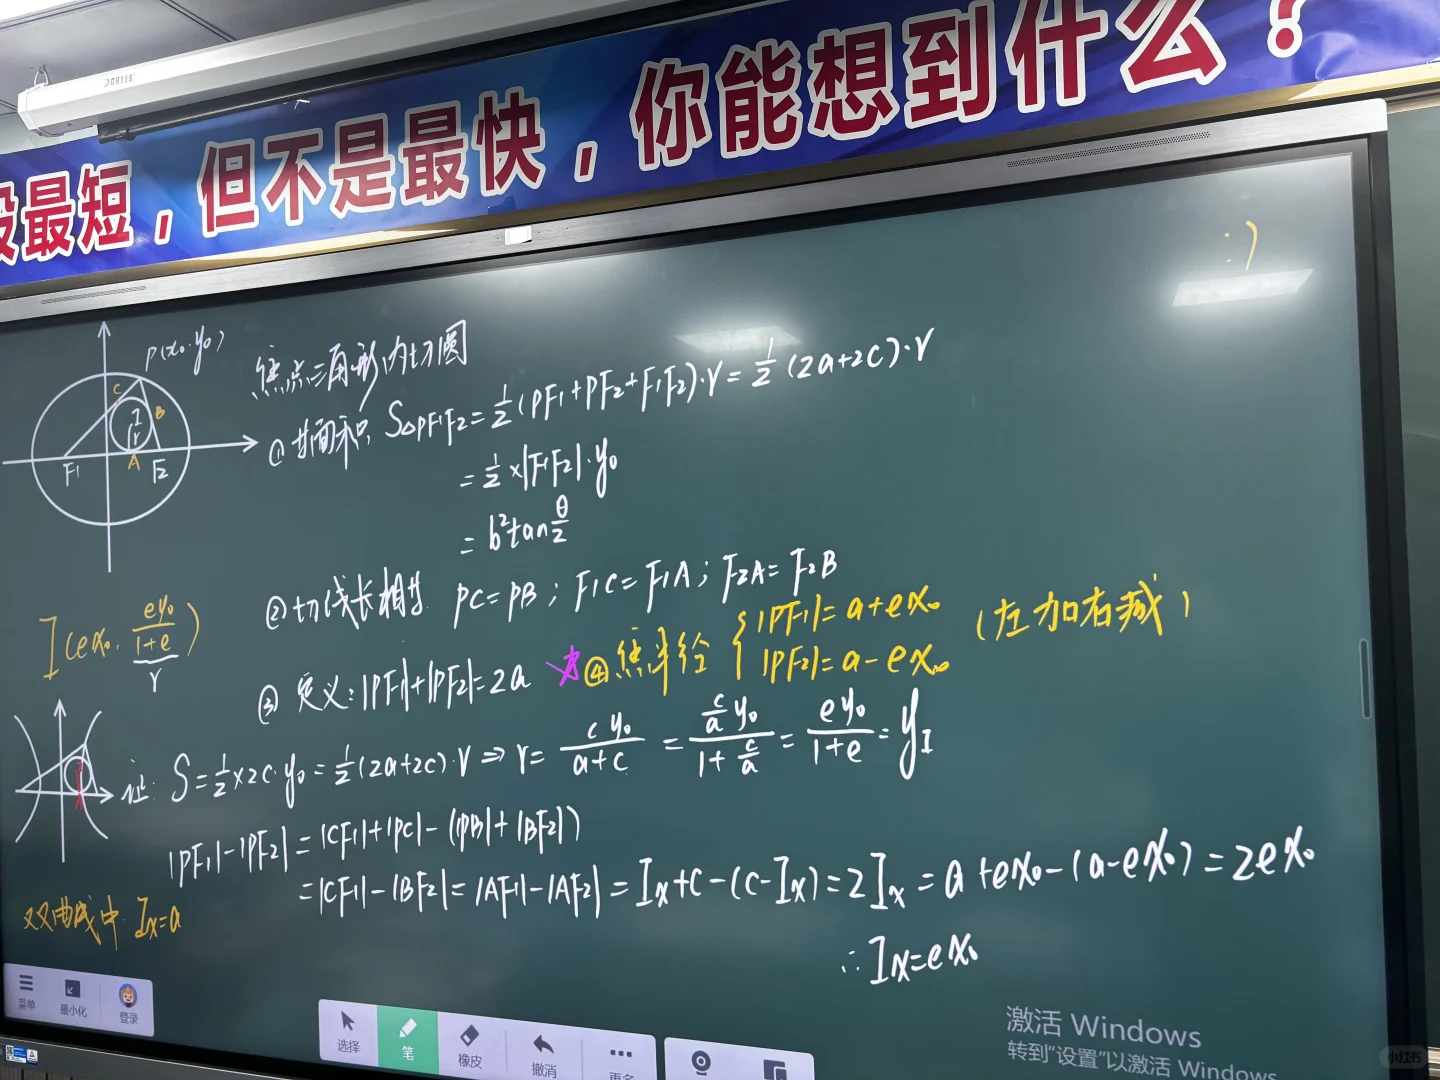 段最短，但不是最快，你能想到什么？
:)
P(x₀.y₀)
C
B
I
r
F1
A
F2
焦点三角形内切圆
① 等面积 S△PF1F2=½(PF1+PF2+F1F2)·r=½(2a+2c)·r
=½×|F1F2|·y₀
=b²tanθ/2
② 切线长相等 PC=PB；F1C=F1A；F2A=F2B
③ 定义:|PF1|+|PF2|=2a
④ 焦半径 {|PF1|=a+ex₀
|PF2|=a-ex₀
(左加右减)
I(ex₀. ey₀/(1+e))
r
证: S=½×2c·y₀=½(2a+2c)·r⇒r=cy₀/(a+c)=(c/a)y₀/(1+c/a)=ey₀/(1+e)=yI
|PF1|-|PF2|=|CF1|+|PC|-(|PB|+|BF2|)
=|CF1|-|BF2|=|AF1|-|AF2|=Ix+c-(c-Ix)=2Ix=a+ex₀-(a-ex₀)=2ex₀
∴Ix=ex₀
双曲线中. Ix=a
菜单
最小化
登录
选择
笔
橡皮
撤消
更多
激活 Windows
转到"设置"以激活 Windows
小红书